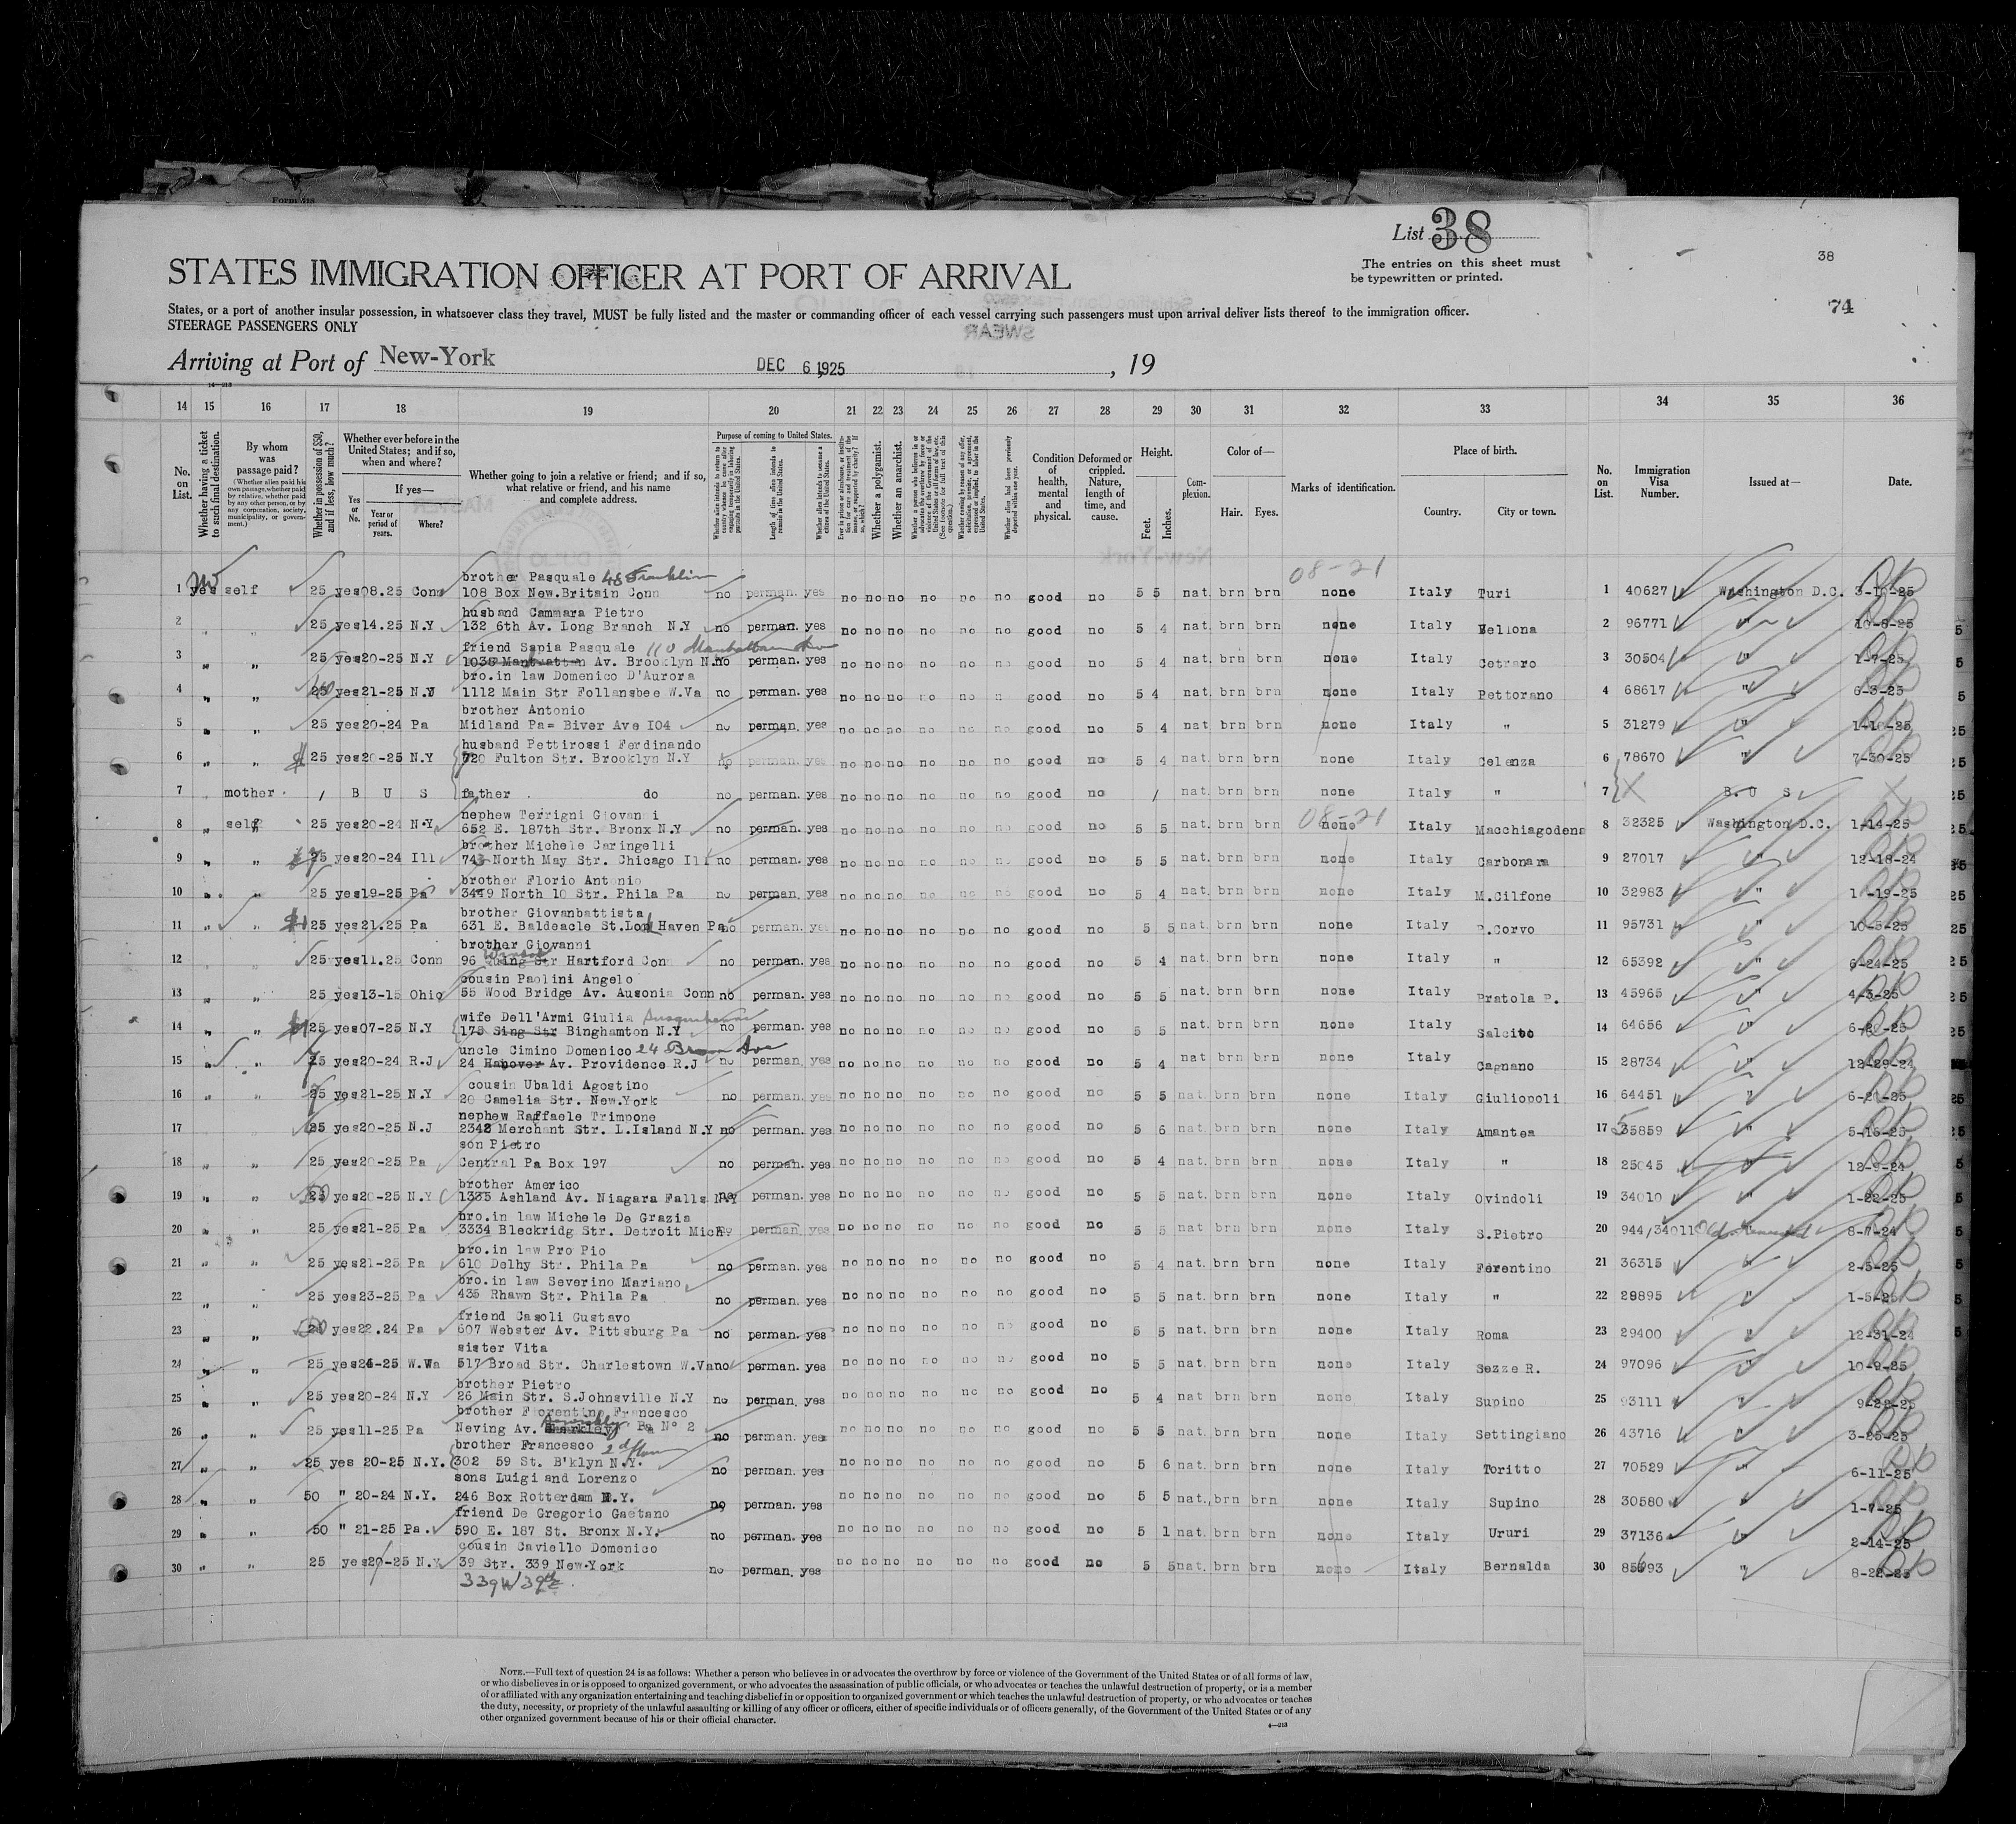 List 38
The entries on this sheet must
be typewritten or printed.
38
74
STATES IMMIGRATION OFFICER AT PORT OF ARRIVAL
States, or a port of another insular possession, in whatsoever class they travel, MUST be fully listed and the master or commanding officer of each vessel carrying such passengers must upon arrival deliver lists thereof to the immigration officer.
STEERAGE PASSENGERS ONLY
Arriving at Port of New-York DEC 6 1925 , 19
14 15 16 17 18 19 20 21 22 23 24 25 26 27 28 29 30 31 32 33 34 35 36
No. on List.
Whether having a ticket to such final destination.
By whom was passage paid?
(Whether alien paid his own passage, whether paid by relative, whether paid by any other person, or by any corporation, society, municipality, or government.)
Whether in possession of $50, and if less, how much?
Whether ever before in the United States; and if so, when and where?
Yes or No.
If yes—
Year or period of years.
Where?
Whether going to join a relative or friend; and if so, what relative or friend, and his name and complete address.
Purpose of coming to United States.
Length of time alien intends to remain in the United States.
Whether alien intends to become a citizen of the United States.
Whether a polygamist.
Whether an anarchist.
Condition of health, mental and physical.
Deformed or crippled. Nature, length of time, and cause.
Height.
Feet. Inches.
Complexion.
Color of—
Hair. Eyes.
Marks of identification.
Place of birth.
Country. City or town.
No. on List.
Immigration Visa Number.
Issued at—
Date.
08-21
brother Pasquale 48 Franklin
1 yes self 25 yes 08.25 Conn 108 Box New.Britain Conn no perman. yes no no no no no no good no 5 5 nat. brn brn none Italy Turi 1 40627 Washington D.C. 3-10-25
husband Cammara Pietro
2 " " 25 yes 14.25 N.Y 132 6th Av. Long Branch N.Y no perman. yes no no no no no no good no 5 4 nat. brn brn none Italy Bellona 2 96771 " 10-8-25
friend Sapia Pasquale 110 Manhattan Av
3 " " 25 yes 20-25 N.Y 1035 Manhattan Av. Brooklyn N.Y no perman. yes no no no no no no good no 5 4 nat. brn brn none Italy Cetraro 3 30504 " 1-7-25
bro.in law Domenico D'Aurora
4 " " yes 21-25 N.Y 1112 Main Str Follansbee W.Va no perman. yes no no no no no good no 5 4 nat. brn brn none Italy Pettorano 4 68617 " 6-3-25
brother Antonio
5 " " 25 yes 20-24 Pa Midland Pa= Biver Ave 104 no perman. yes no no no no no no good no 5 4 nat brn brn none Italy " 5 31279 " 1-16-25
husband Pettirossi Ferdinando
6 " " 25 yes 20-25 N.Y 720 Fulton Str. Brooklyn N.Y no perman. yes no no no no no no good no 5 4 nat. brn brn none Italy Celenza 6 78670 " 7-30-25
7 " mother / B U S father do no perman. yes no no no no no no good no / nat. brn brn none Italy " 7 X B. U S. X
nephew Terrigni Giovanni 08-21
8 " self 25 yes 20-24 N.Y 652 E. 187th Str. Bronx N.Y no perman. yes no no no no no no good no 5 5 nat. brn brn none Italy Macchiagodena 8 32325 Washington D.C. 1-14-25
brother Michele Caringelli
9 " " 25 yes 20-24 Ill 743 North May Str. Chicago Ill no perman. yes no no no no no no good no 5 5 nat. brn brn none Italy Carbonara 9 27017 " 12-18-24
brother Florio Antonio
10 " " 25 yes 19-25 Pa 3449 North 10 Str. Phila Pa no perman. yes no no no no no no good no 5 4 nat. brn brn none Italy M.Cilfone 10 32983 " 1-19-25
brother Giovanbattista
11 " " 25 yes 21.25 Pa 631 E. Baldeacle St.Lock Haven Pa no perman. yes no no no no no no good no 5 5 nat. brn brn none Italy P.Corvo 11 95731 " 10-5-25
brother Giovanni
12 " " 25 yes 11.25 Conn 96 Windsor Str Hartford Conn no perman. yes no no no no no no good no 5 4 nat. brn brn none Italy " 12 65392 " 6-24-25
cousin Paolini Angelo
13 " " 25 yes 13-15 Ohio 55 Wood Bridge Av. Ausonia Conn no perman. yes no no no no no no good no 5 5 nat. brn brn none Italy Pratola P. 13 45965 " 4-3-25
wife Dell'Armi Giulia Susquehanna
14 " " 25 yes 07-25 N.Y 175 Sing Str Binghamton N.Y no perman. yes no no no no no no good no 5 5 nat. brn brn none Italy Salcito 14 64656 " 6-22-25
uncle Cimino Domenico 24 Brown Ave
15 " " 25 yes 20-24 R.J 24 Hanover Av. Providence R.J no perman. yes no no no no no no good no 5 4 nat brn brn none Italy Cagnano 15 28734 " 12-29-24
cousin Ubaldi Agostino
16 " " 25 yes 21-25 N.Y 20 Camelia Str. New.York no perman. yes no no no no no no good no 5 5 nat brn brn none Italy Giuliopoli 16 64451 " 6-21-25
nephew Raffaele Trimpone
17 " " 25 yes 20-25 N.J 2342 Merchant Str. L.Island N.Y no perman. yes no no no no no no good no 5 6 nat. brn brn none Italy Amantea 17 55859 " 5-16-25
son Pietro
18 " " 25 yes 20-25 Pa Central Pa Box 197 no perman. yes no no no no no no good no 5 4 nat. brn brn none Italy " 18 25045 " 12-9-24
brother Americo
19 " " yes 20-25 N.Y 1335 Ashland Av. Niagara Falls N.Y no perman. yes no no no no no no good no 5 5 nat. brn brn none Italy Ovindoli 19 34010 " 1-22-25
bro.in law Michele De Grazia
20 " " 25 yes 21-25 Pa 3334 Bleckridg Str. Detroit Mich. no perman. yes no no no no no no good no 5 5 nat brn brn none Italy S.Pietro 20 944/34011 8-7-24
bro.in law Pro Pio
21 " " 25 yes 21-25 Pa 610 Delhy Str. Phila Pa no perman. yes no no no no no no good no 5 4 nat. brn brn none Italy Ferentino 21 36315 " 2-5-25
bro.in law Severino Mariano
22 " " 25 yes 23-25 Pa 435 Rhawn Str. Phila Pa no perman. yes no no no no no no good no 5 5 nat. brn brn none Italy " 22 29895 " 1-5-25
friend Casoli Gustavo
23 " " yes 22.24 Pa 607 Webster Av. Pittsburg Pa no perman. yes no no no no no no good no 5 5 nat. brn brn none Italy Roma 23 29400 " 12-31-24
sister Vita
24 " " 25 yes 24-25 W.Va 517 Broad Str. Charlestown W.Va no perman. yes no no no no no no good no 5 5 nat. brn brn none Italy Sezze R. 24 97096 " 10-9-25
brother Pietro
25 " " 25 yes 20-24 N.Y 26 Main Str. S.Johnsville N.Y no perman. yes no no no no no no good no 5 4 nat brn brn none Italy Supino 25 93111 " 9-28-25
brother Fiorentino Francesco
26 " " 25 yes 11-25 Pa Neving Av. Sewickley Pa N° 2 no perman. yes no no no no no no good no 5 5 nat. brn brn none Italy Settingiano 26 43716 " 3-25-25
brother Francesco 2d floor
27 " " 25 yes 20-25 N.Y. 302 59 St. B'klyn N.Y. no perman. yes no no no no no no good no 5 6 nat. brn brn none Italy Toritto 27 70529 " 6-11-25
sons Luigi and Lorenzo
28 " " 50 " 20-24 N.Y. 246 Box Rotterdam N.Y. no perman. yes no no no no no no good no 5 5 nat. brn brn none Italy Supino 28 30580 " 1-7-25
friend De Gregorio Gaetano
29 " " 50 " 21-25 Pa. 590 E. 187 St. Bronx N.Y. no perman. yes no no no no no no good no 5 1 nat. brn brn none Italy Ururi 29 37136 " 2-14-25
cousin Caviello Domenico
30 " " 25 yes 20-25 N.Y 39 Str. 339 New-York no perman. yes no no no no no no good no 5 5 nat. brn brn none Italy Bernalda 30 85693 " 8-22-25
339 W 39th
NOTE.—Full text of question 24 is as follows: Whether a person who believes in or advocates the overthrow by force or violence of the Government of the United States or of all forms of law,
or who disbelieves in or is opposed to organized government, or who advocates the assassination of public officials, or who advocates or teaches the unlawful destruction of property, or is a member
of or affiliated with any organization entertaining and teaching disbelief in or opposition to organized government or which teaches the unlawful destruction of property, or who advocates or teaches
the duty, necessity, or propriety of the unlawful assaulting or killing of any officer or officers, either of specific individuals or of officers generally, of the Government of the United States or of any
other organized government because of his or their official character.